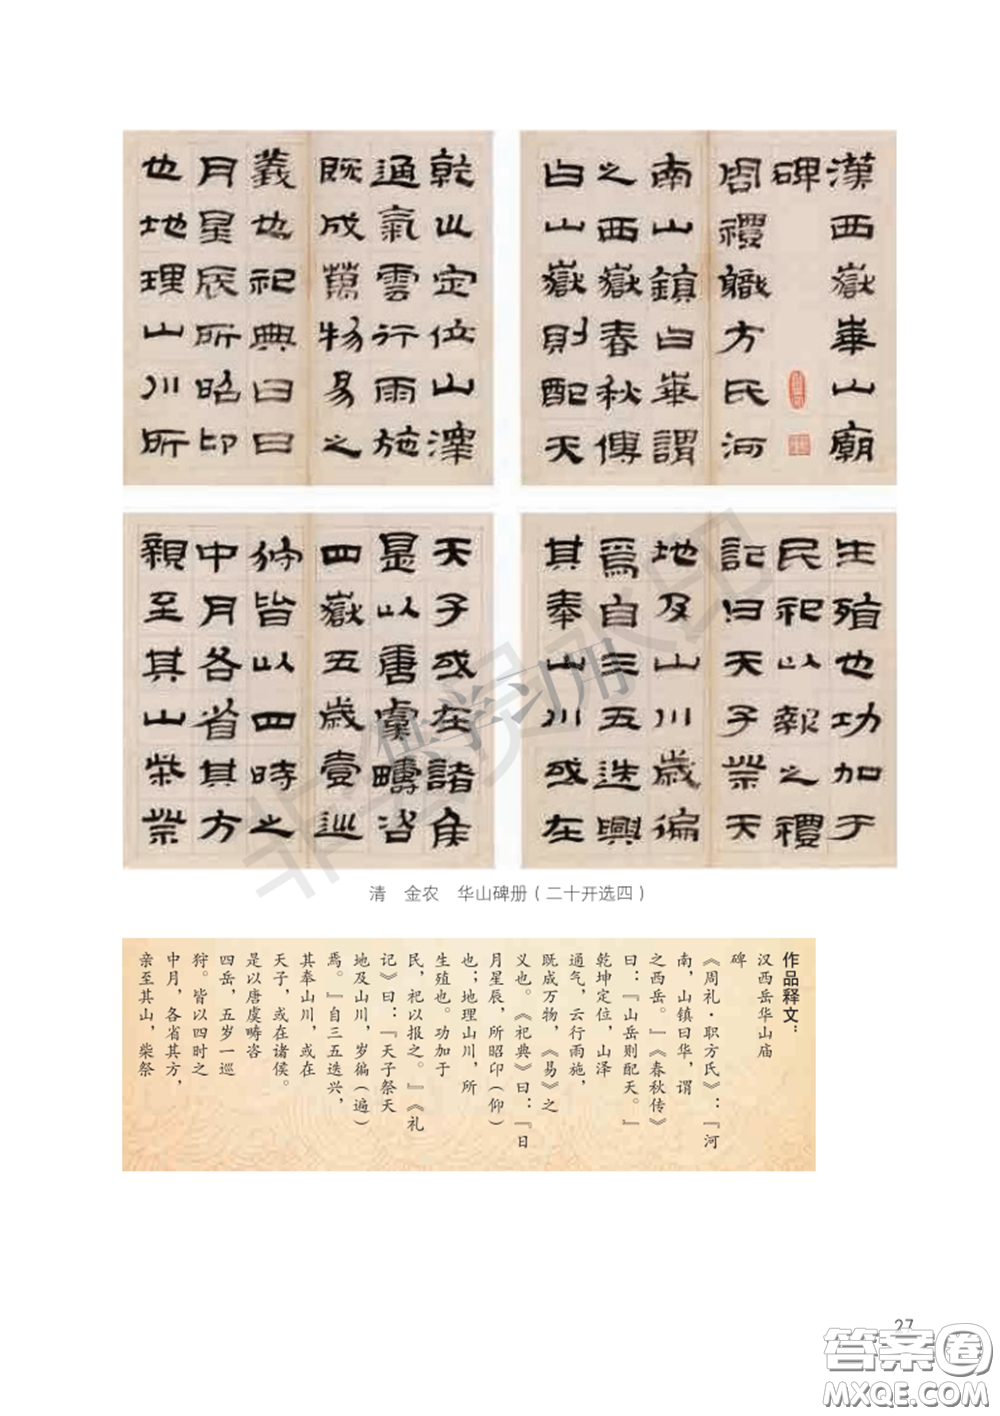 漢西嶽華山廟
碑
周禮職方氏河
南山鎮曰華謂
之西嶽春秋傳
曰山嶽則配天
乾巛定位山澤
通氣雲行雨施
既成萬物易之
義也祀典曰日
月星辰所昭卬
也地理山川所
生殖也功加于
民祀以報之禮
記曰天子祭天
地及山川歲徧
焉自三五迭興
其奉山川或在
天子或在諸侯
是以唐虞疇咨
四嶽五歲壹巡
狩皆以四時之
中月各省其方
親至其山柴祭
清　金农　华山碑册（二十开选四）
作品释文：
汉西岳华山庙
碑
《周礼·职方氏》：『河
南，山镇曰华，谓
之西岳。』《春秋传》
曰：『山岳则配天。』
乾坤定位，山泽
通气，云行雨施，
既成万物，《易》之
义也。《祀典》曰：『日
月星辰，所昭卬（仰）
也；地理山川，所
生殖也。功加于
民，祀以报之。』《礼
记》曰：『天子祭天
地及山川，岁徧（遍）
焉。』自三五迭兴，
其奉山川，或在
天子，或在诸侯。
是以唐虞畴咨
四岳，五岁一巡
狩。皆以四时之
中月，各省其方，
亲至其山，柴祭
27
答案圈
MXQE.COM